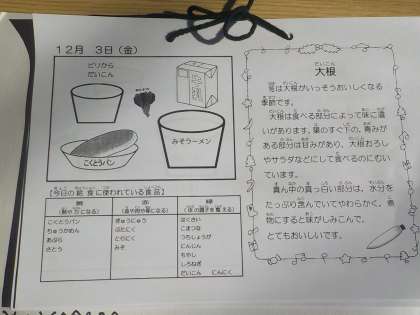 12月 3日(金)
ピリから
だいこん
みそラーメン
こくとうパン
【今日の給食に使われている食品】
黄
(熱や力になる)
こくとうパン
ちゅうかめん
あぶら
さとう
赤
(血や肉や骨になる)
ぎゅうにゅう
ぶたにく
とりにく
みそ
緑
(体の調子を整える)
はくさい
こまつな
うちしょうが
にんじん
もやし
しろねぎ
だいこん にんにく
だいこん
大根
冬は大根がいっそうおいしくなる
季節です。
大根は食べる部分によって味に違
いがあります。葉のすぐ下の、青みが
ある部分は甘みがあり、大根おろし
やサラダなどにして食べるのにむい
ています。
真ん中の真っ白い部分は、水分を
たっぷり含んでいてやわらかく、煮
物にすると味がしみこんで、
とてもおいしいです。